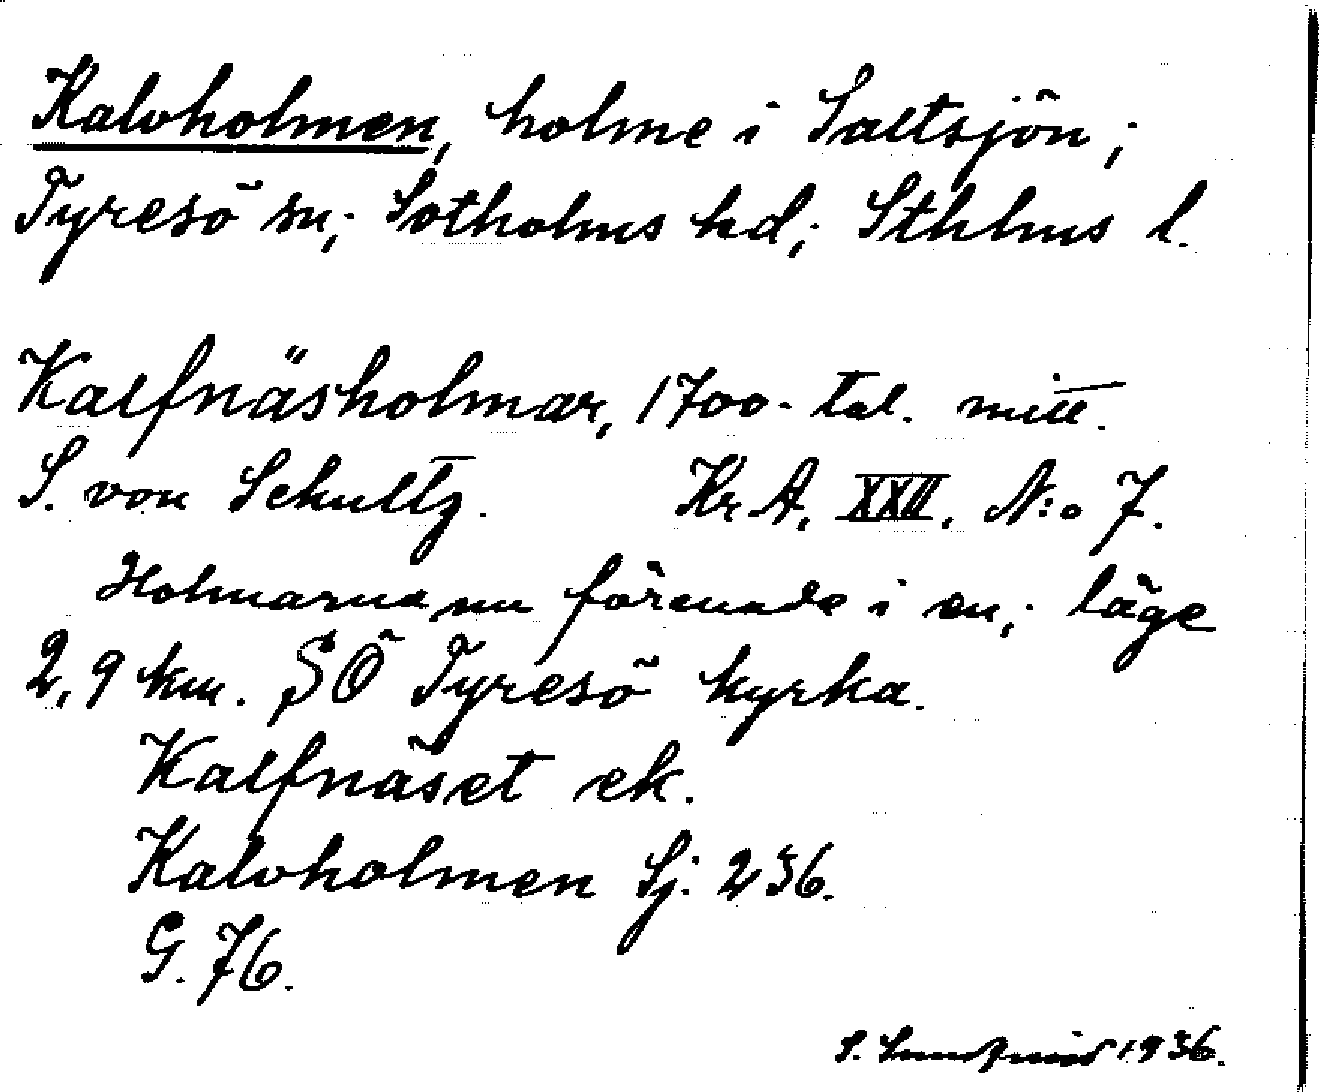 Kalvholmen, holme i Saltsjön;
Tyresö sn; Sotholms hd; Sthlms l.
Kalfnäsholmar, 1700-tal. mitt.
S. von Schultz. Kr. A. XXII. N:o 7.
Holmarna nu förenade i en; läge
2,9 km. SÖ Tyresö kyrka.
Kalfnäset ek.
Kalvholmen Sj. 236.
G. 76.
S. 1936.